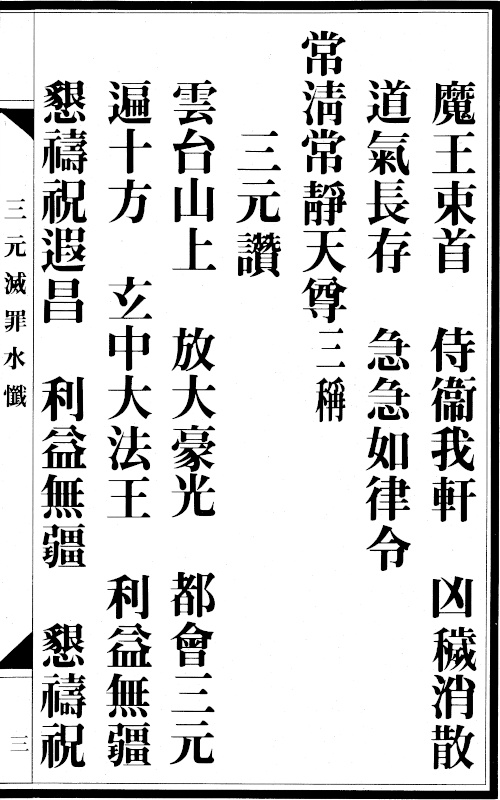 魔王束首　侍衞我軒　凶穢消散
道氣長存　急急如律令
常淸常靜天尊三稱
三元讚
雲台山上　放大豪光　都會三元
遍十方　玄中大法王　利益無疆
懇禱祝遐昌　利益無疆　懇禱祝
三元滅罪水懺
三